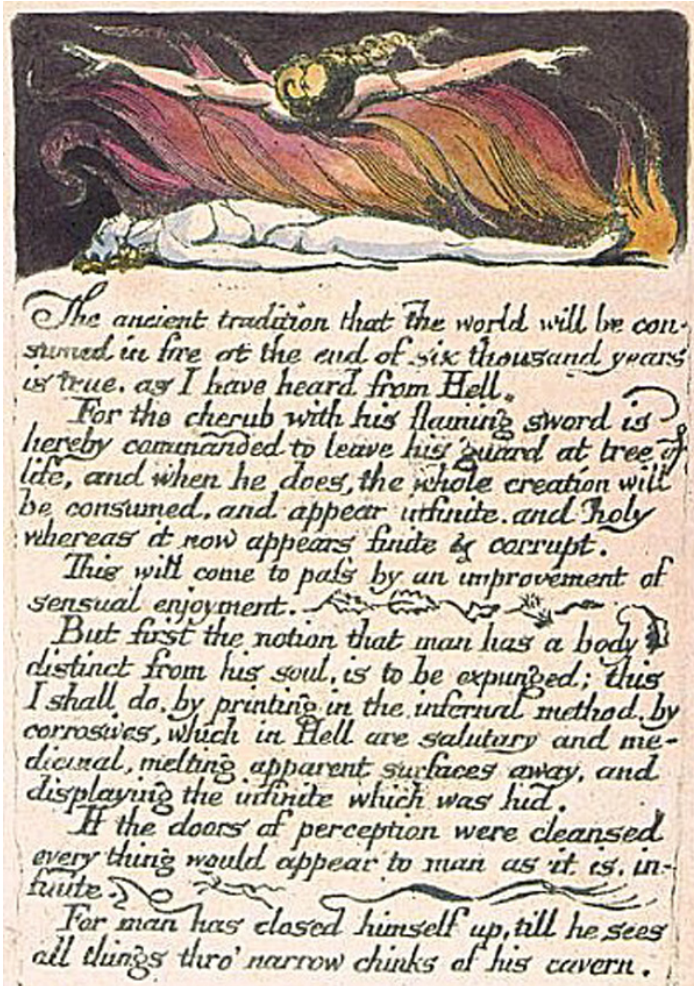 The ancient tradition that the world will be con-
sumed in fire at the end of six thousand years
is true. as I have heard from Hell.
For the cherub with his flaming sword is
hereby commanded to leave his guard at tree of
life, and when he does, the whole creation will
be consumed. and appear infinite. and holy
whereas it now appears finite & corrupt.
This will come to pass by an improvement of
sensual enjoyment.
But first the notion that man has a body
distinct from his soul, is to be expunged; this
I shall do, by printing in the infernal method. by
corrosives, which in Hell are salutary and me-
dicinal, melting apparent surfaces away, and
displaying the infinite which was hid.
If the doors of perception were cleansed
every thing would appear to man as it is. in-
finite.
For man has closed himself up, till he sees
all things thro' narrow chinks of his cavern.